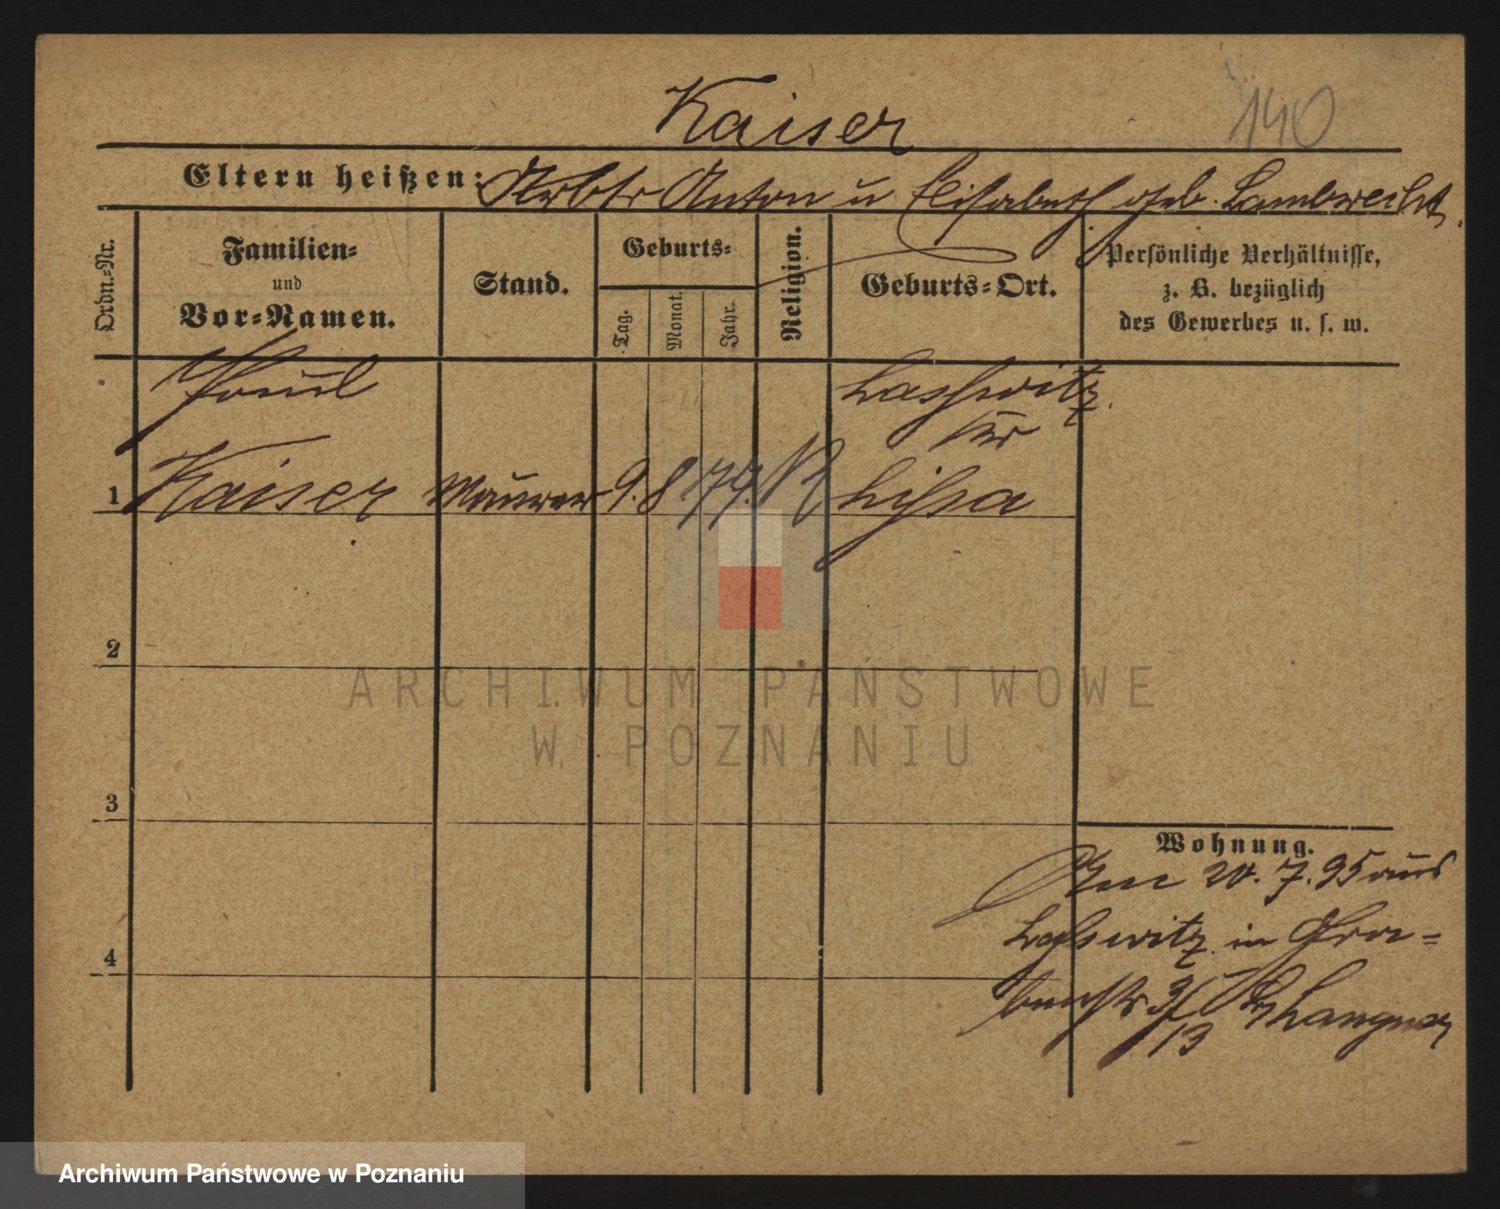 Kaiser
140
Eltern heißen: Arbtr Anton u Elisabeth geb. Lambrecht.
Ordn.=Nr.
Familien=
und
Vor=Namen.
Stand.
Geburts=
Tag.
Monat.
Jahr.
Religion.
Geburts=Ort.
Persönliche Verhältnisse,
z. B. bezüglich
des Gewerbes u. s. w.
Paul
Lasswitz
Kr
1 Kaiser Maurer 9. 8. 79. K Lissa
2
ARCHIWUM PAŃSTWOWE
W POZNANIU
3
Wohnung.
20. 7. 95 aus
Lasswitz in Gra=
benstr 3/13 Langner
4
Archiwum Państwowe w Poznaniu